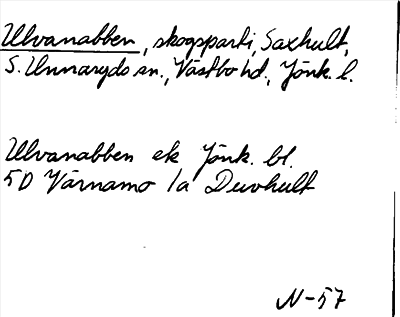 Ulvanabben, skogsparti, Saxhult,
S. Unnaryds sn., Västbo hd., Jönk. l.
Ulvanabben ek Jönk. bl.
5D Värnamo 1a Duvhult
N-57